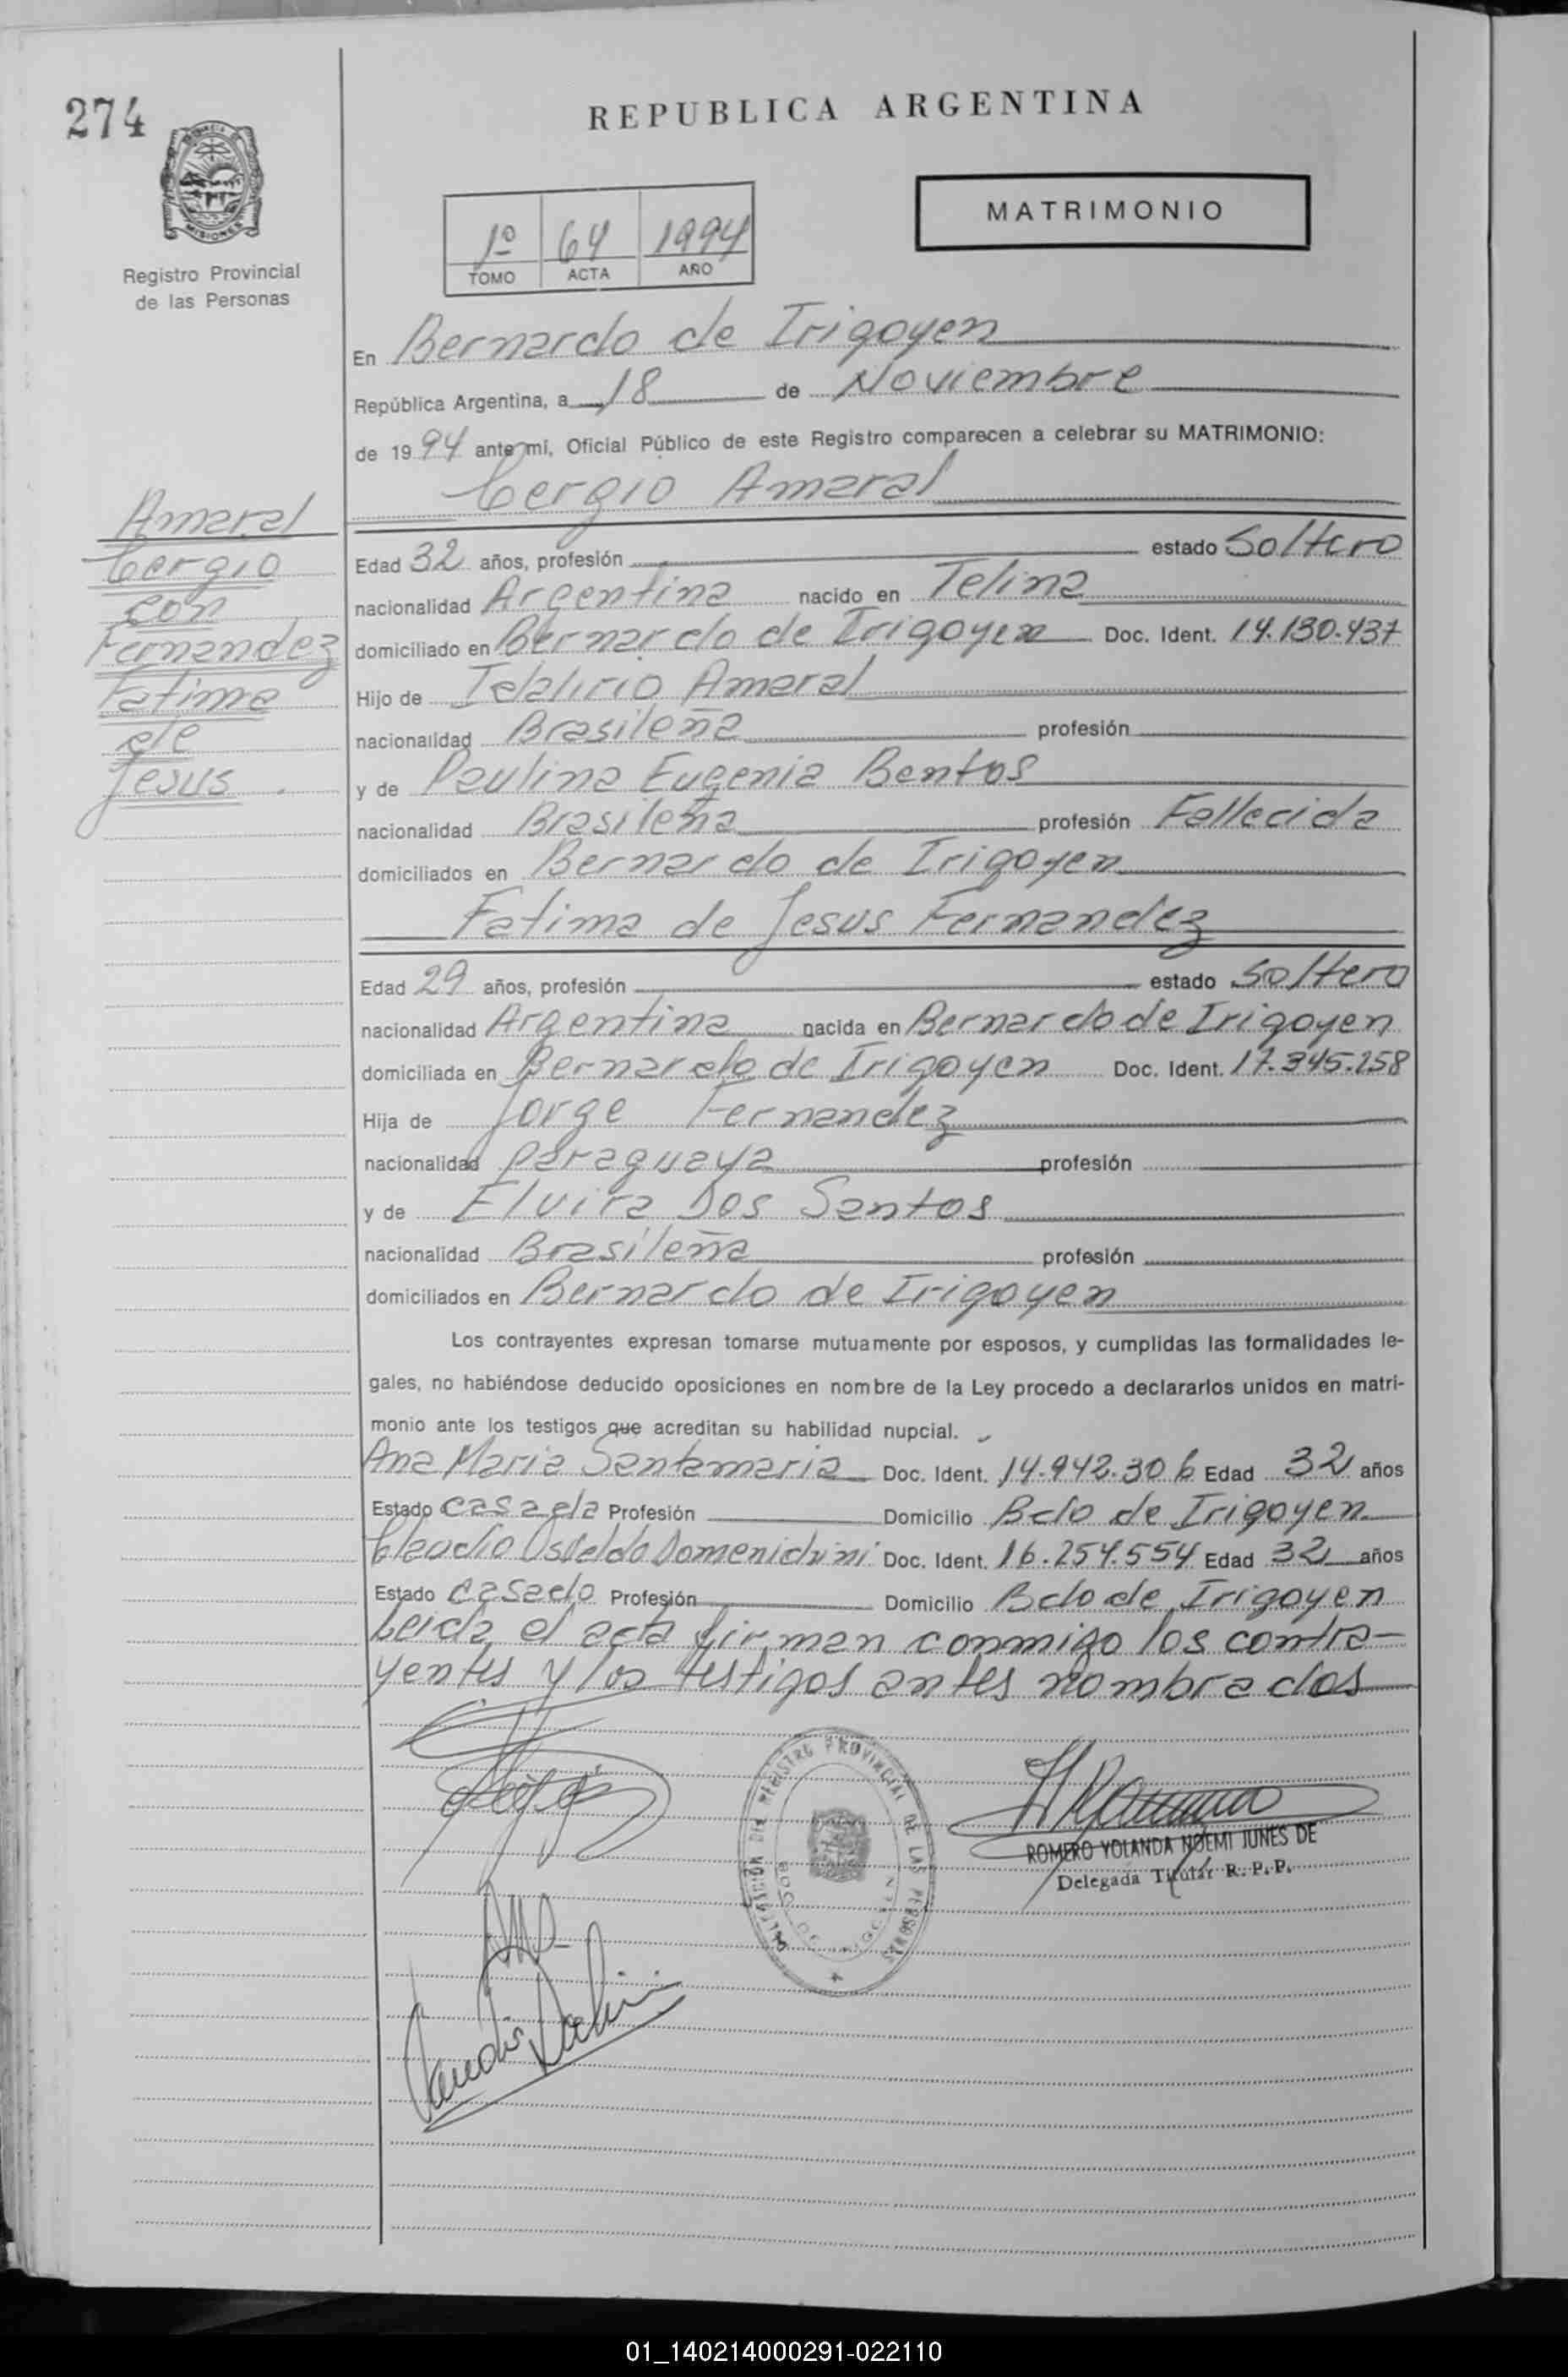 274
REPUBLICA ARGENTINA
MISIONES
Registro Provincial
de las Personas
1º 64 1994
TOMO ACTA AÑO
MATRIMONIO
En Bernardo de Irigoyen
República Argentina, a 18 de Noviembre
de 1994 ante mí, Oficial Público de este Registro comparecen a celebrar su MATRIMONIO:
Cergio Amaral
Amaral
Cergio
con
Fernandez
Fatima
de
Jesus.
Edad 32 años, profesión estado Soltero
nacionalidad Argentina nacido en Telina
domiciliado en Bernardo de Irigoyen Doc. Ident. 14.130.437
Hijo de Amaral
nacionalidad Brasileña profesión
y de Paulina Eugenia Bentos
nacionalidad Brasileña profesión Fallecida
domiciliados en Bernardo de Irigoyen
Fatima de Jesus Fernandez
Edad 29 años, profesión estado Soltero
nacionalidad Argentina nacida en Bernardo de Irigoyen
domiciliada en Bernardo de Irigoyen Doc. Ident. 17.345.258
Hija de Jorge Fernandez
nacionalidad Paraguaya profesión
y de Elvira Dos Santos
nacionalidad Brasileña profesión
domiciliados en Bernardo de Irigoyen
Los contrayentes expresan tomarse mutuamente por esposos, y cumplidas las formalidades le-
gales, no habiéndose deducido oposiciones en nombre de la Ley procedo a declararlos unidos en matri-
monio ante los testigos que acreditan su habilidad nupcial.
Ana Maria Santamaria Doc. Ident. 14.942.306 Edad 32 años
Estado casada Profesión Domicilio Bdo de Irigoyen
Claudio Osvaldo Domenichini Doc. Ident. 16.254.554 Edad 32 años
Estado casado Profesión Domicilio Bdo de Irigoyen
Leida el acta firman conmigo los contra-
yentes y los testigos antes nombrados
DELEGACIÓN DEL REGISTRO PROVINCIAL DE LAS PERSONAS
BDO. DE IRIGOYEN
ROMERO YOLANDA NOEMI JUNES DE
Delegada Titular R. P. P.
01_140214000291-022110